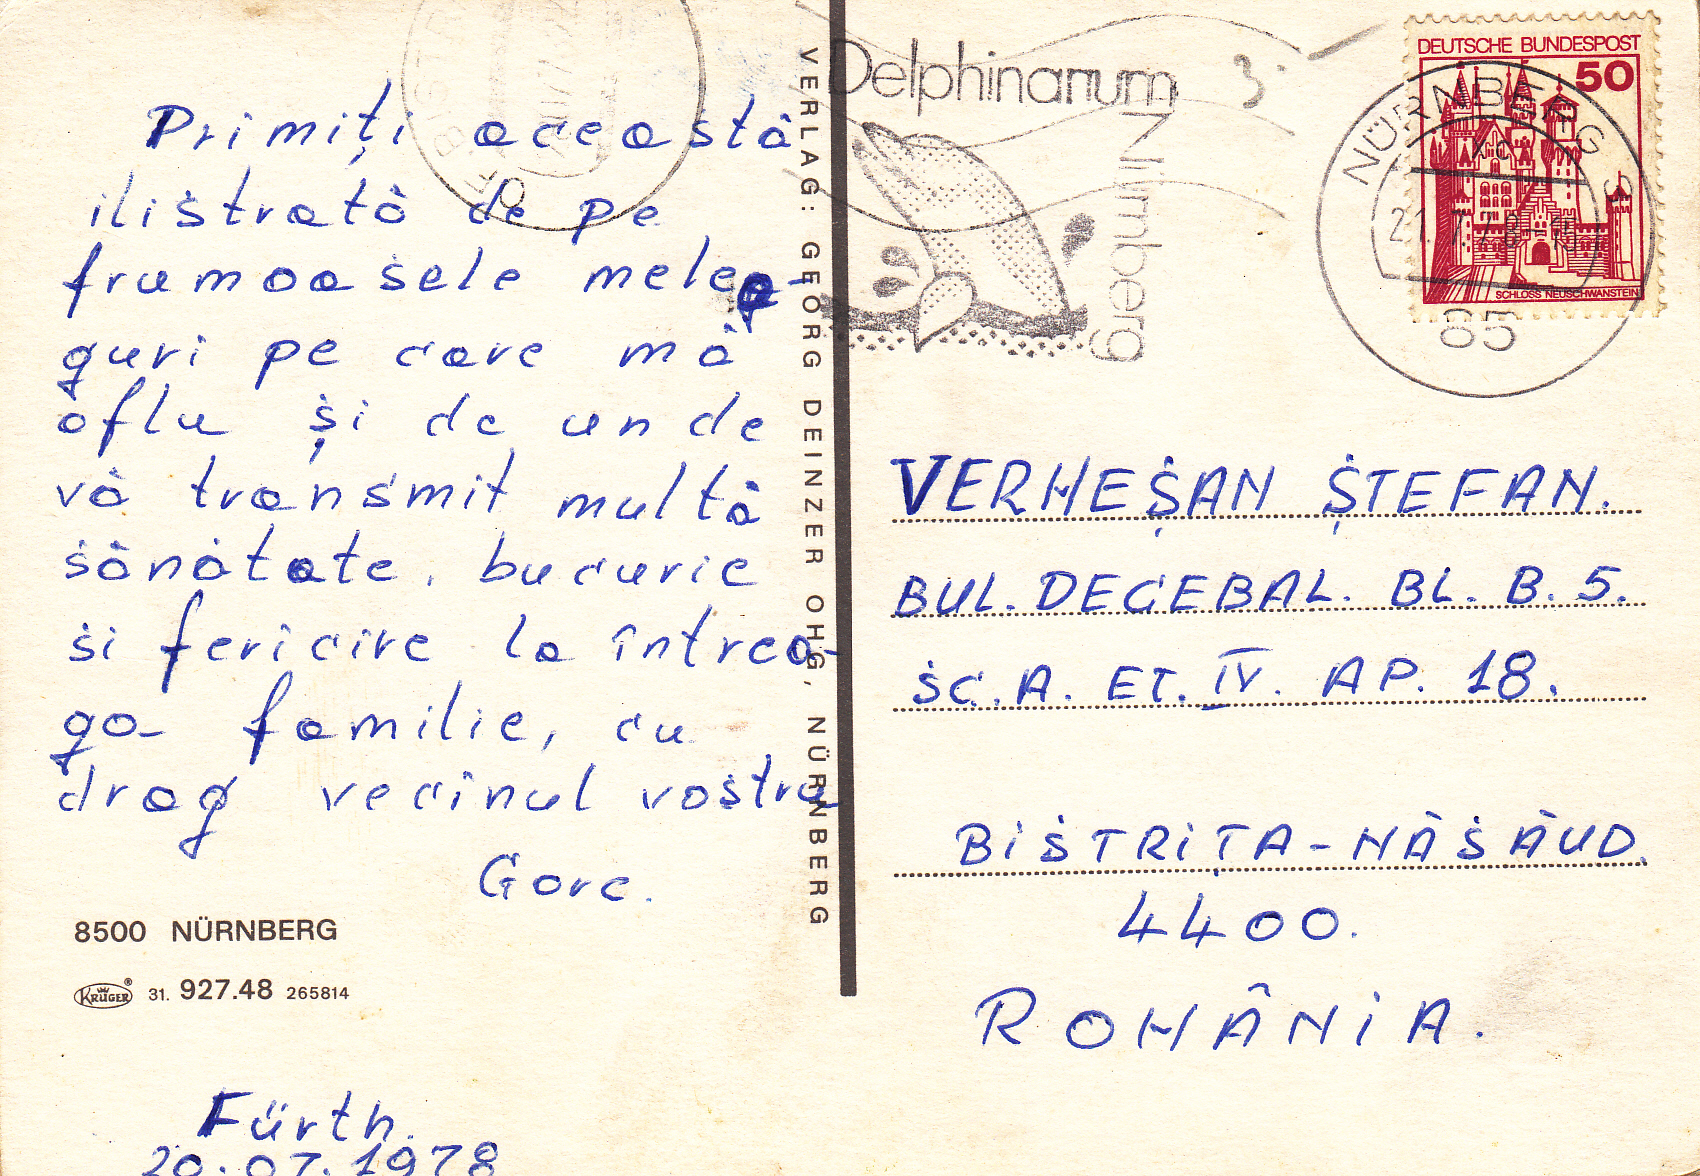 Primiți această
ilistrată de pe
frumoasele melea-
guri pe care mă
aflu și de unde
vă transmit multă
sănătate, bucurie
si fericire la întrea-
ga familie, cu
drag vecinul vostru
Gore.
8500 NÜRNBERG
KRÜGER® 31. 927.48 265814
Fürth.
20.07.1978
VERLAG: GEORG DEINZER OHG, NÜRNBERG
Delphinarium
Nürnberg
DEUTSCHE BUNDESPOST
50
SCHLOSS NEUSCHWANSTEIN
NÜRNBERG
21.7.78
85
3.-
VERHEȘAN ȘTEFAN.
BUL. DECEBAL. BL. B. 5.
SC. A. ET. IV. AP. 18.
BISTRIȚA-NĂSĂUD.
4400.
ROMÂNIA.